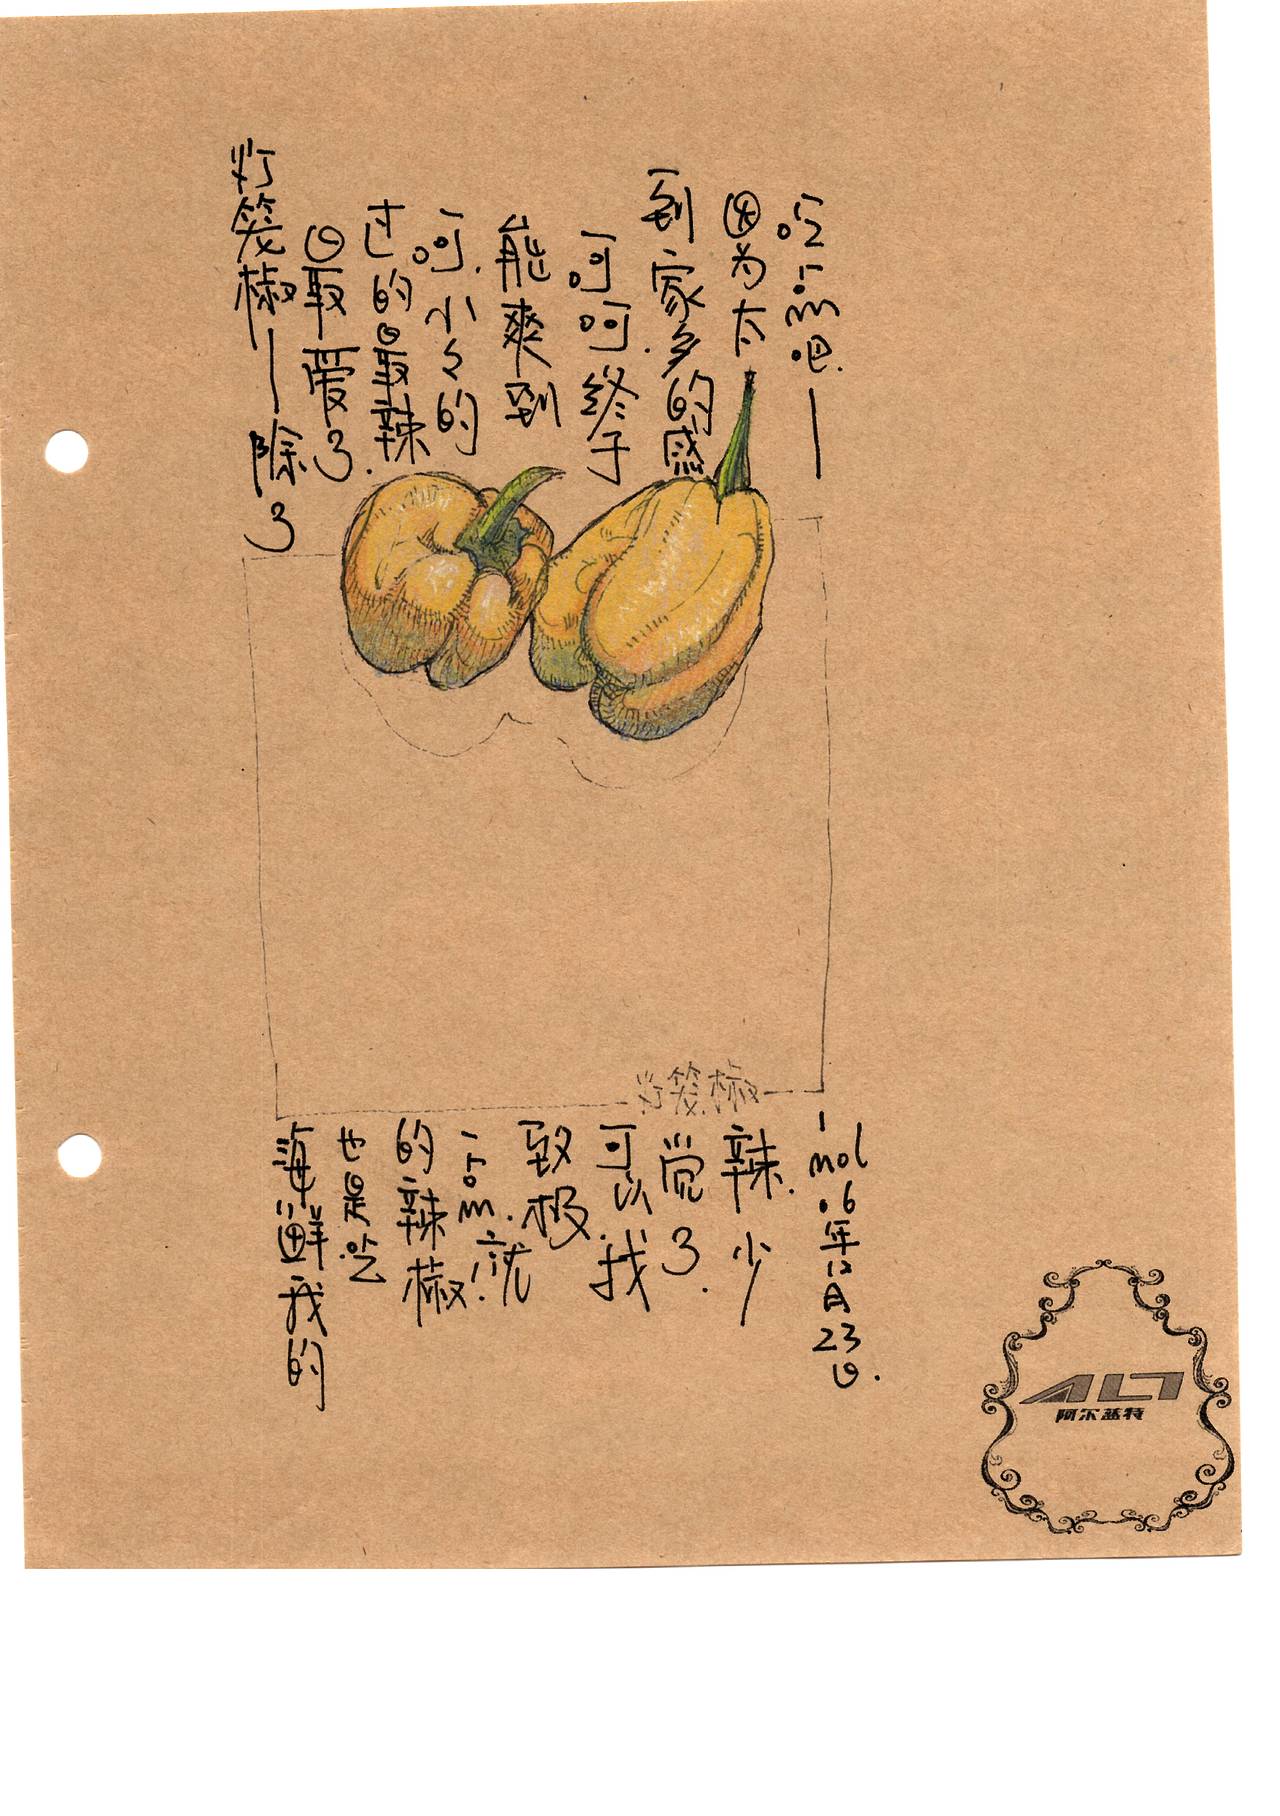 灯笼椒—除了
海鲜我的
最爱了.
也是吃
过的最辣
的辣椒!
呵.小々的
一点.就
能爽到
致极.
呵呵.终于
可以找
到家乡的感
觉了.
因为太
辣.少
吃一点吧.—
—mol 06年12月23日.
灯笼椒
ALT
阿尔兹特